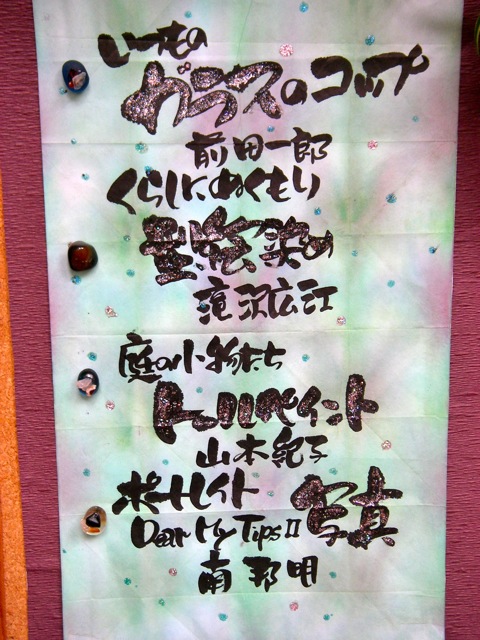 いつもの
ガラスのコップ
前田一郎
くらしにぬくもり
型絵染め
滝沢広江
庭の小物たち
トールペイント
山本紀子
ポートレイト 写真
Dear My Tips II
南邦明